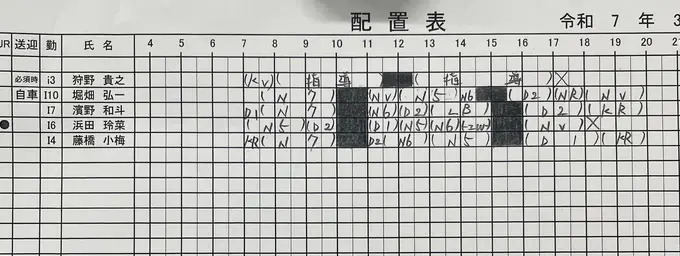 配置表 令和 7 年 3
JR 送迎 勤 氏 名 4 5 6 7 8 9 10 11 12 13 14 15 16 17 18 19 20 21
必須時 i3 狩野 貴之 (KV)( 指 導 ( 指 導 )
自車 I10 堀畑 弘一 ( N 7 ) (NV)( N 5 N6 ( D2 )(NR)( N V )
I7 濱野 和斗 D1( N 7 ) (N6)(D2)( L B ) ( D 2 )( K R )
● I6 浜田 玲菜 ( N 5 )(D2 (D1)(N5)(N6) ( N V )
I4 藤橋 小梅 KR( N 7 ) D2( N6 )( N 5 ) ( D 1 )( K R )